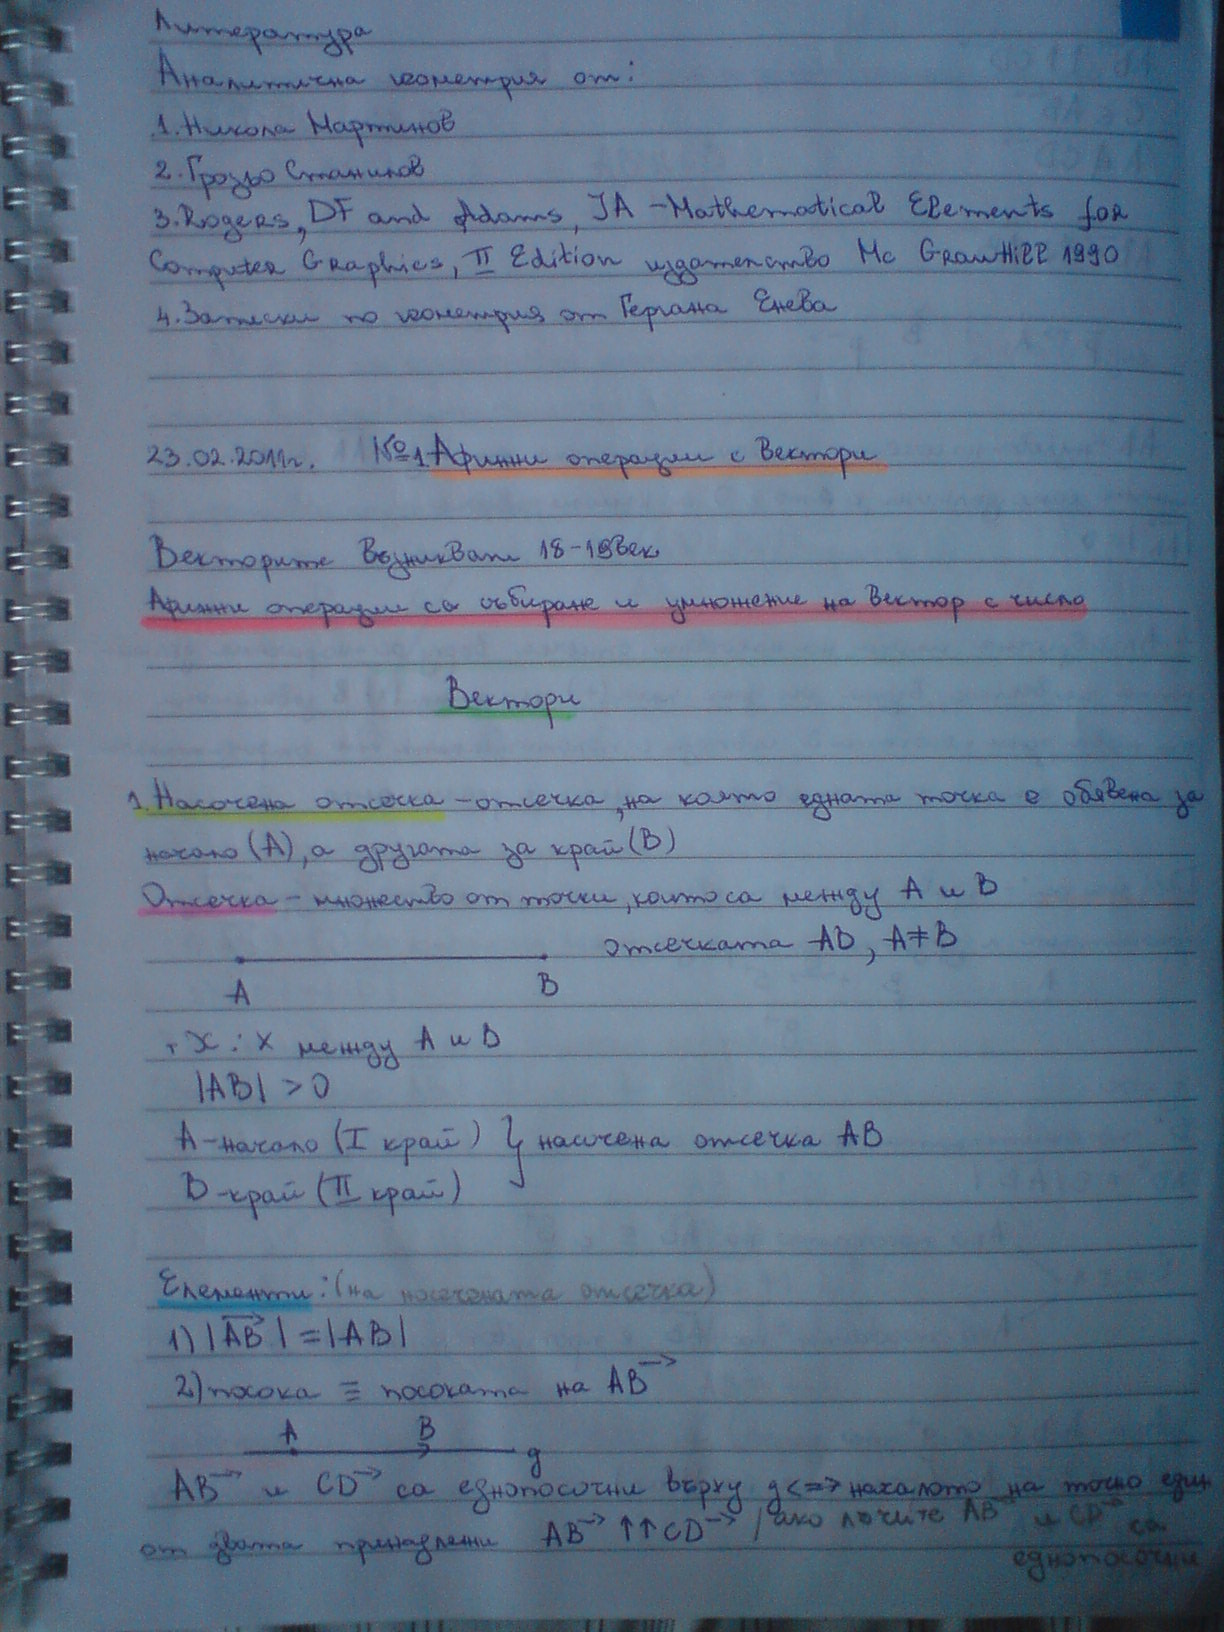 Литература
Аналитична геометрия от:
1. Никола Мартинов
2. Грозьо Станилов
3. Rogers, DF and Adams, JA - Mathematical Elements for
Computer Graphics, II Edition издателство Mc GrawHill 1990
4. Записки по геометрия от Гергана Енева
23.02.2011г. №1 Афинни операции с вектори
Векторите възникват 18-19век
Афинни операции са събиране и умножение на вектор с число
Вектори
1. Насочена отсечка - отсечка, на която едната точка е обявена за
начало (A), а другата за край (B)
Отсечка - множество от точки, които са между A и B
отсечката AB, A≠B
A B
т. X : X между A и B
|AB| > 0
A - начало (I край) } насочена отсечка AB
B - край (II край)
Елементи: (на насочената отсечка)
1) |AB→| = |AB|
2) посока ≡ посоката на AB→
A B g
AB→ и CD→ са еднопосочни върху g <=> началото на точно един
от двата принадлежи AB→ ↑↑ CD→ / ако лъчите AB→ и CD→ са
еднопосочни